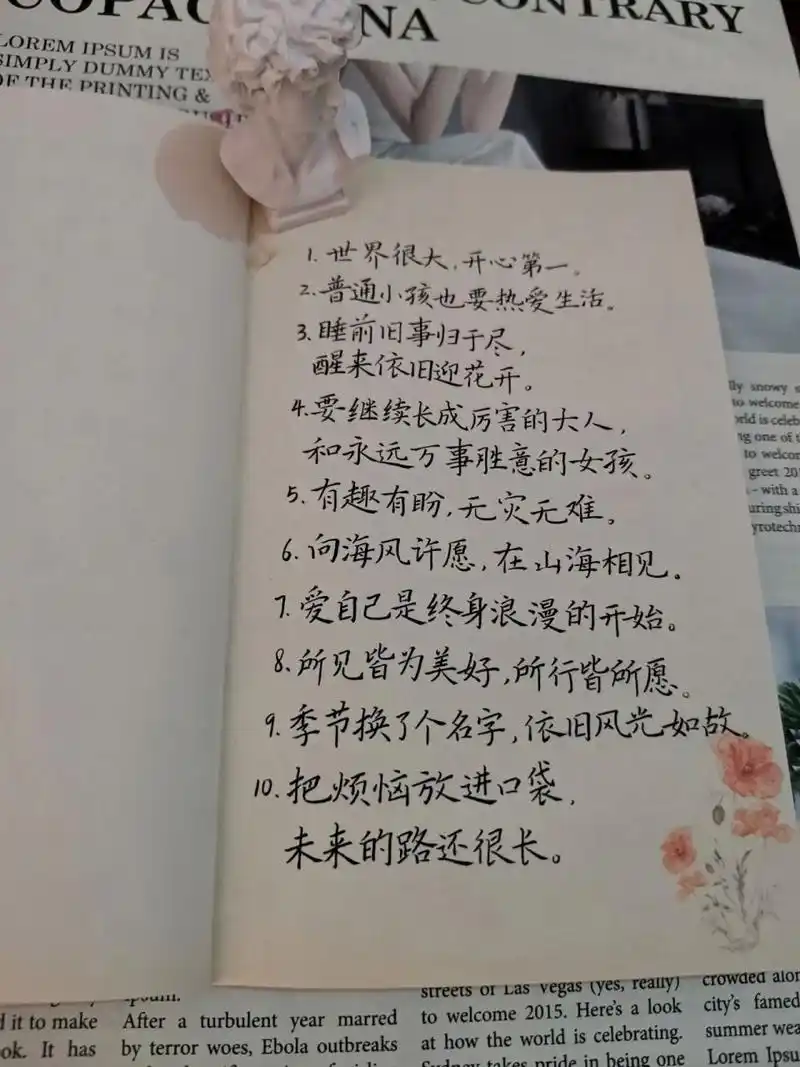 CONTRARY
NA
LOREM IPSUM IS
SIMPLY DUMMY
OF THE PRINTING &
1. 世界很大,开心第一。
2. 普通小孩也要热爱生活。
3. 睡前旧事归于尽,
醒来依旧迎花开。
4. 要继续长成厉害的大人,
和永远万事胜意的女孩。
5. 有趣有盼,无灾无难。
6. 向海风许愿,在山海相见。
7. 爱自己是终身浪漫的开始。
8. 所见皆为美好,所行皆所愿。
9. 季节换了个名字,依旧风光如故。
10. 把烦恼放进口袋,
未来的路还很长。
snowy
to welcome
ing one of
to welcom
greet 20
- with a
it to make
ok. It has
After a turbulent year marred
by terror woes, Ebola outbreaks
streets of Las Vegas (yes, really)
to welcome 2015. Here's a look
at how the world is celebrating.
Sydney takes pride in being one
crowded
city's famed
summer
Lorem